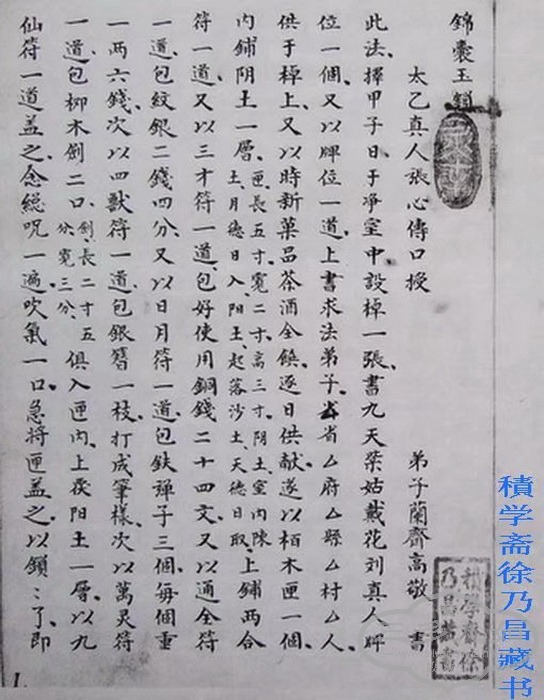 錦囊玉鎖
太乙真人張心傳口授
弟子蘭齊高敬書
此法擇甲子日于净室中設棹一張書九天荣姑戴花刘真人牌
位一個又以牌位一道上書求法弟子厶省厶府厶縣厶村厶人
供于棹上又以時新菓品茶酒全饌逐日供献遂以栢木匣一個
内鋪阴土一層匣長五寸寬二寸高三寸阴土室内陳土月德日入阳土起落沙土天德日取上鋪两合
符一道又以三才符一道包好使用銅錢二十四文又以通全符
一道包紋銀二錢四分又以日月符一道包鉄弹子三個每個重
一两六錢次以四獸符一道包銀簪一枝打成筆樣次以萬灵符
一道包柳木劍二口劍長二寸五分寬三分俱入匣内上葢阳土一層以九
仙符一道盖之念緫咒一遍吹氣一口急將匣盖之以鎖鎖了即
1
積学斋徐乃昌藏书
積學齋徐乃昌藏書